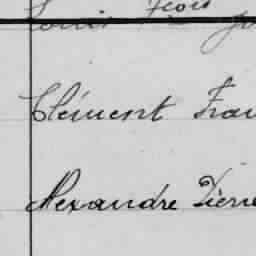 Clément Fran
Alexandre Pierre